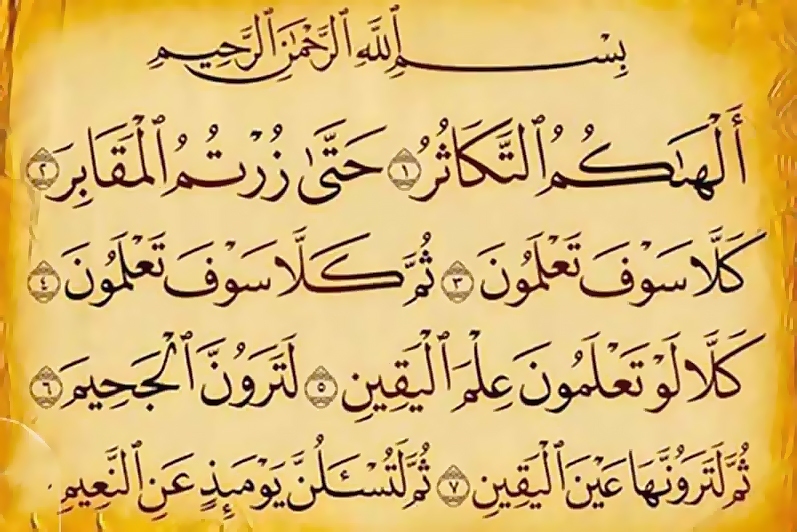 بِسْمِ ٱللَّهِ ٱلرَّحْمَٰنِ ٱلرَّحِيمِ
أَلْهَىٰكُمُ ٱلتَّكَاثُرُ ١ حَتَّىٰ زُرْتُمُ ٱلْمَقَابِرَ ٢
كَلَّا سَوْفَ تَعْلَمُونَ ٣ ثُمَّ كَلَّا سَوْفَ تَعْلَمُونَ ٤
كَلَّا لَوْ تَعْلَمُونَ عِلْمَ ٱلْيَقِينِ ٥ لَتَرَوُنَّ ٱلْجَحِيمَ ٦
ثُمَّ لَتَرَوُنَّهَا عَيْنَ ٱلْيَقِينِ ٧ ثُمَّ لَتُسْـَٔلُنَّ يَوْمَئِذٍ عَنِ ٱلنَّعِيمِ